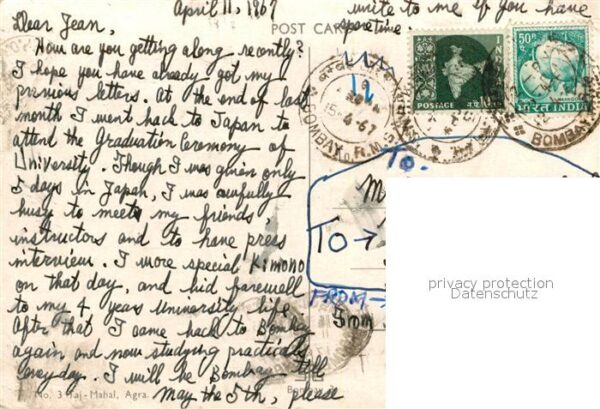 April 11, 1967
Dear Jean,
How are you getting along recently?
I hope you have already got my
previous letters. At the end of last
month I went back to Japan to
attend the Graduation Ceremony of
University. Though I was given only
5 days in Japan, I was awfully
busy to meet my friends,
instructors and to have press
interview. I wore special Kimono
on that day, and bid farewell
to my 4 years University life.
After that I came back to Bombay
again, and now studying practical
everyday. I will be Bombay till
May the 5th, please
write to me if you have
spare time.
POST CARD
No. 3 Taj-Mahal, Agra.
POSTAGE
50
भारत INDIA
BOMBAY R.M.S.
15-4-67
BOMBAY
To.
TO →
FROM →
privacy protection
Datenschutz